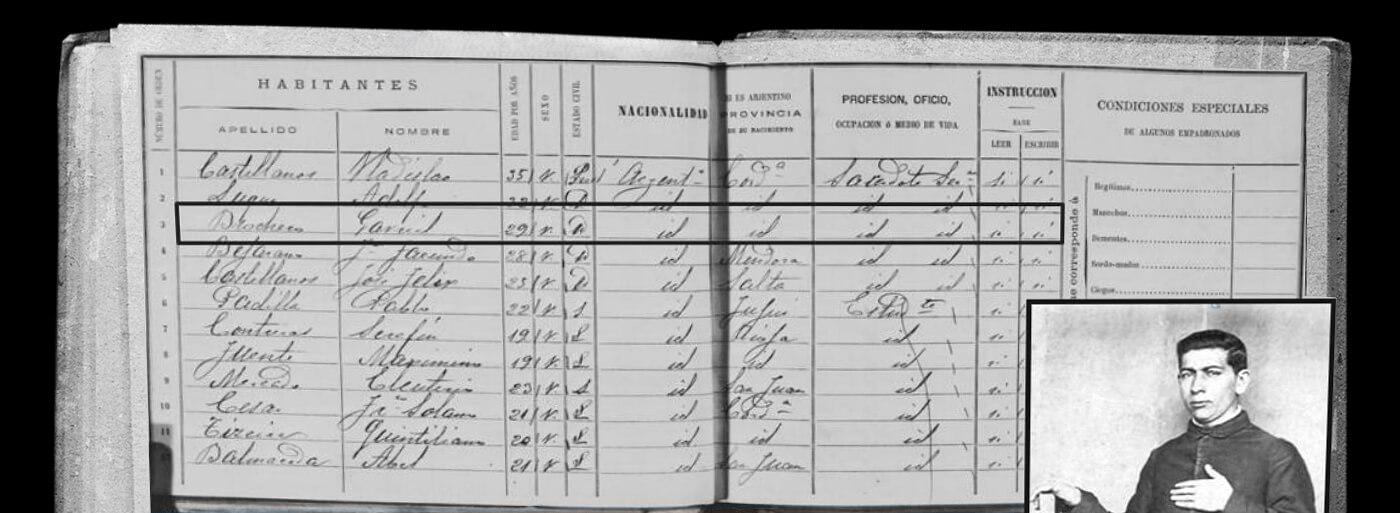 NÚMERO DE ORDEN
HABITANTES
APELLIDO NOMBRE
EDAD POR AÑOS
SEXO
ESTADO CIVIL
NACIONALIDAD
SI ES ARJENTINO
PROVINCIA
DE SU NACIMIENTO
PROFESION, OFICIO,
OCUPACION ó MEDIO DE VIDA
INSTRUCCION
SABE
LEER ESCRIBIR
CONDICIONES ESPECIALES
DE ALGUNOS EMPADRONADOS
1 Castellanos Uladislao 35 V. Argent.ª Cord.ª Sacerdote si si
2 Adolfo V. id id id id si si
3 Brochero Gavriel 29 V. id id id id si si
4 Bejarano J. Jacindo 28 V. id Mendosa id id si si
5 Castellanos José Felix 25 V. id Salta id id si si
6 Padilla Pablo 22 V. S id Jujui Estud.te si
7 Contreras Serafin 19 V. S id Rioja id si
8 Fuente Maximino 19 V. S id id id si
9 Mercado Eleuterio 23 V. S id San Juan id si
10 Cesar Fr. Solano 21 V. S id Cord.ª id si
11 Quintiliano 20 V. S id id id si
Balmaceda Abel 21 V. S id San Juan id si
que corresponde á
Ilegítimos
Mancebos
Dementes
Sordo-mudos
Ciegos